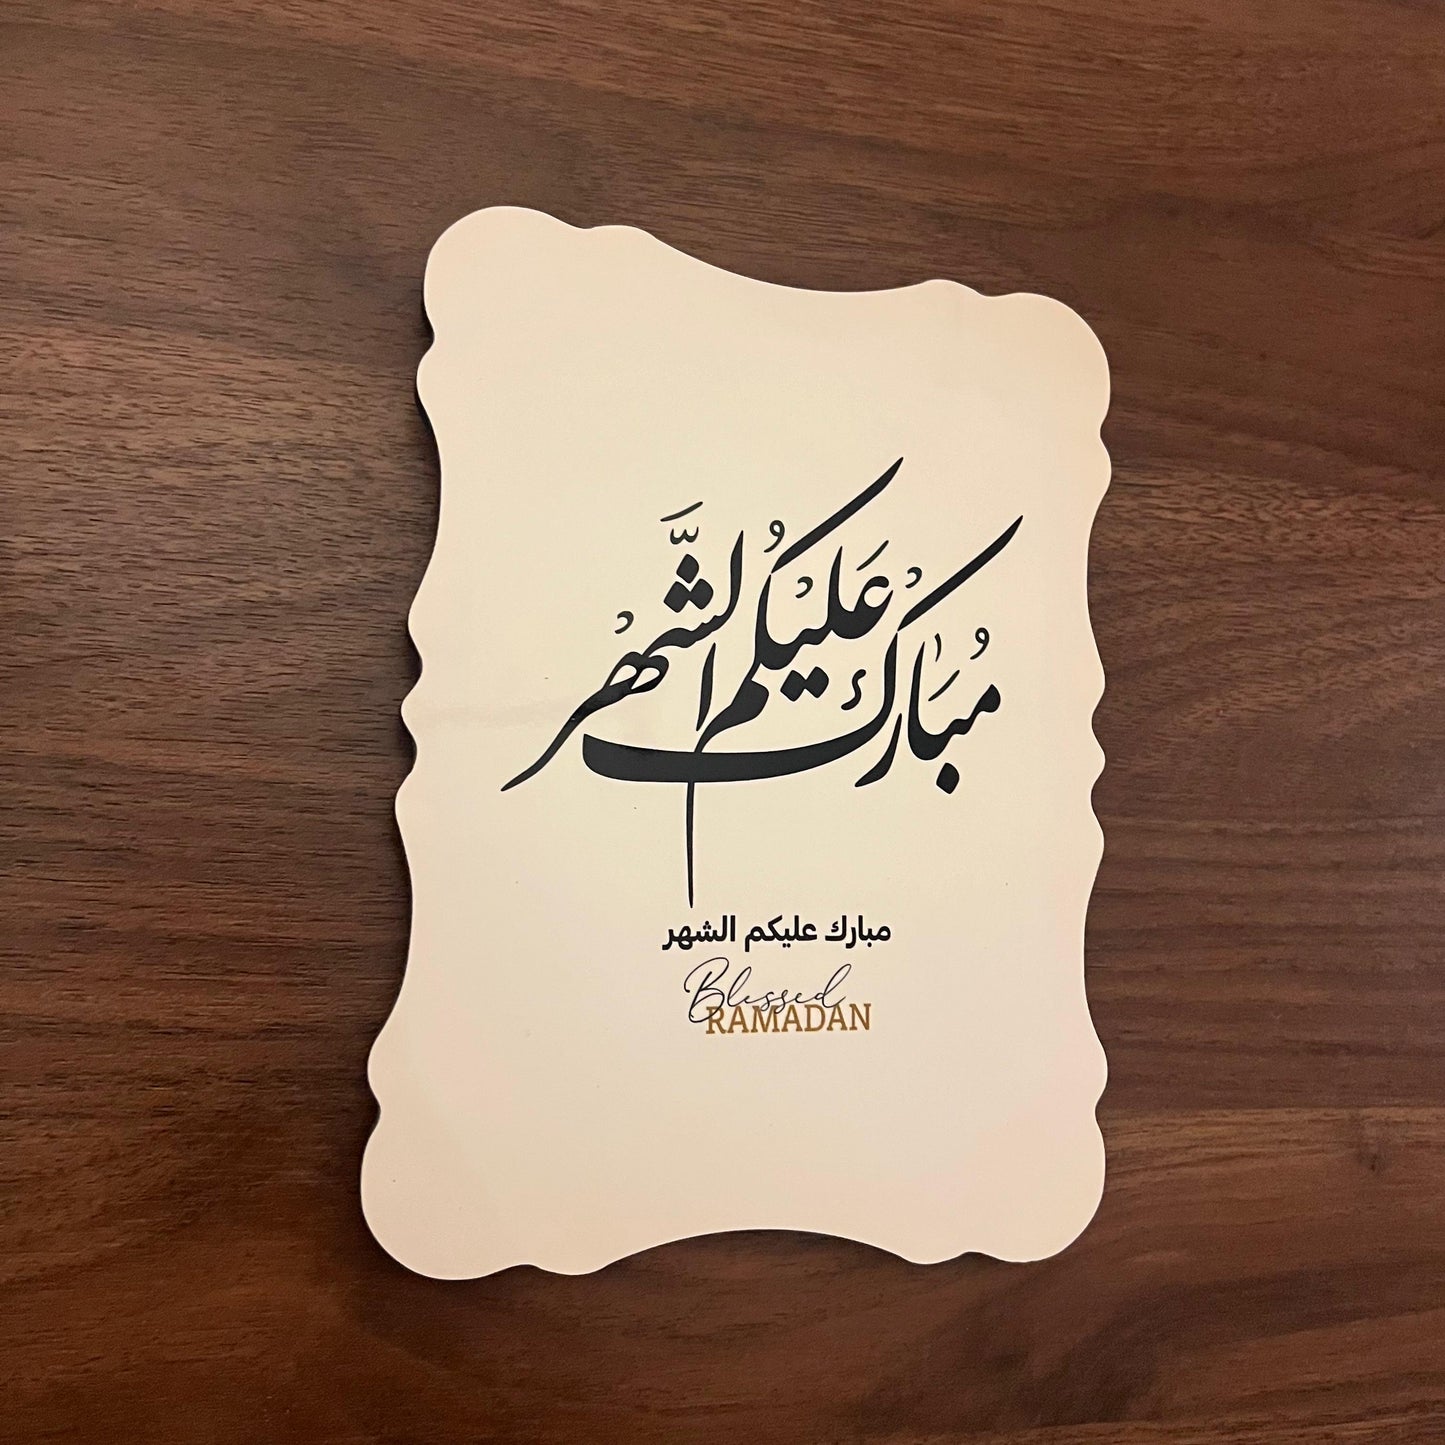 مُبَارَك عَلَيْكُم الشَّهْر
مبارك عليكم الشهر
Blessed
RAMADAN